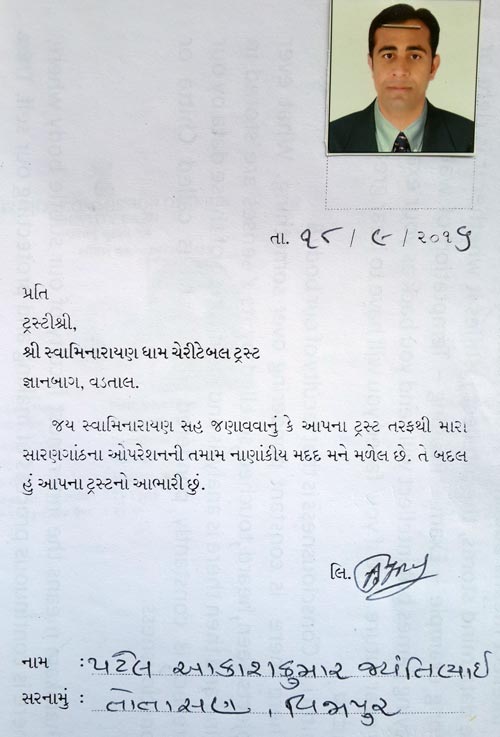 તા. ૧૮ / ૯ / ૨૦૧૫
પ્રતિ
ટ્રસ્ટીશ્રી,
શ્રી સ્વામિનારાયણ ધામ ચેરીટેબલ ટ્રસ્ટ
જ્ઞાનબાગ, વડતાલ.
જય સ્વામિનારાયણ સહ જણાવવાનું કે આપના ટ્રસ્ટ તરફથી મારા
સારણગાંઠના ઓપરેશનની તમામ નાણાંકીય મદદ મને મળેલ છે. તે બદલ
હું આપના ટ્રસ્ટનો આભારી છું.
લિ.
નામ : પટેલ આકાશકુમાર જ્યંતિભાઈ
સરનામું :